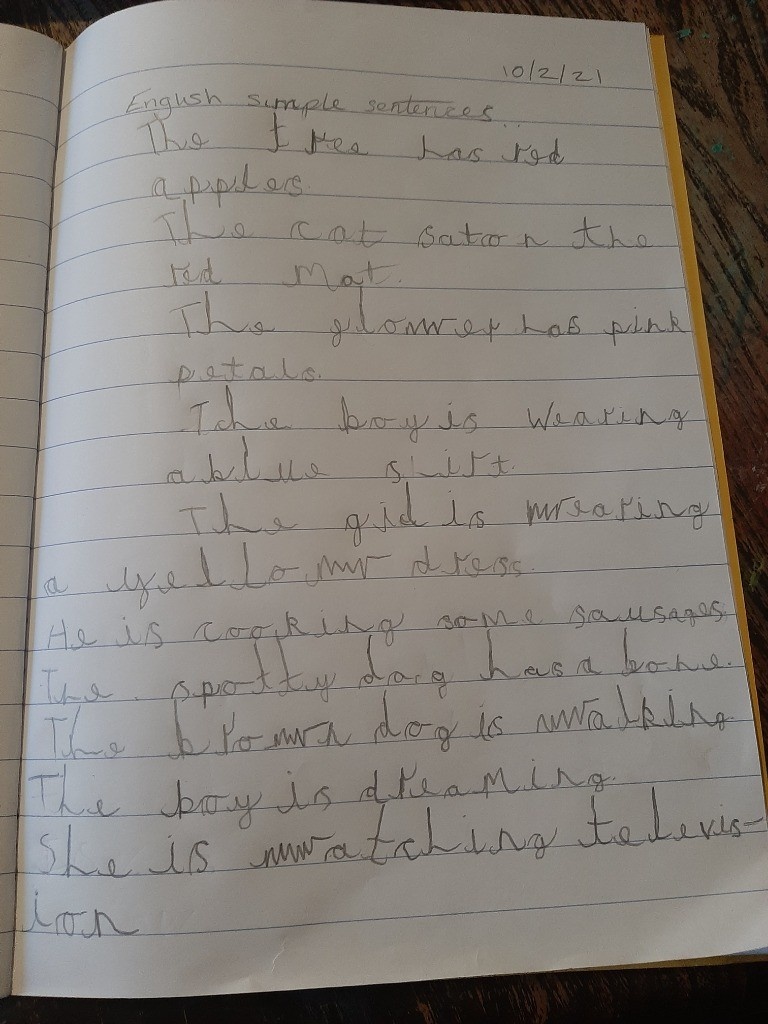 10/2/21
English simple sentences
The tree has red
apples.
The cat sat on the
red mat.
The glower has pink
petals.
Tche boy is wearing
a blue shirt.
The gid is wearing
a yellow dress.
He is cooking some sausages.
The spotty dog has a bone.
The brown dog is walking
The boy is dreaming.
She is watching televis-
ion